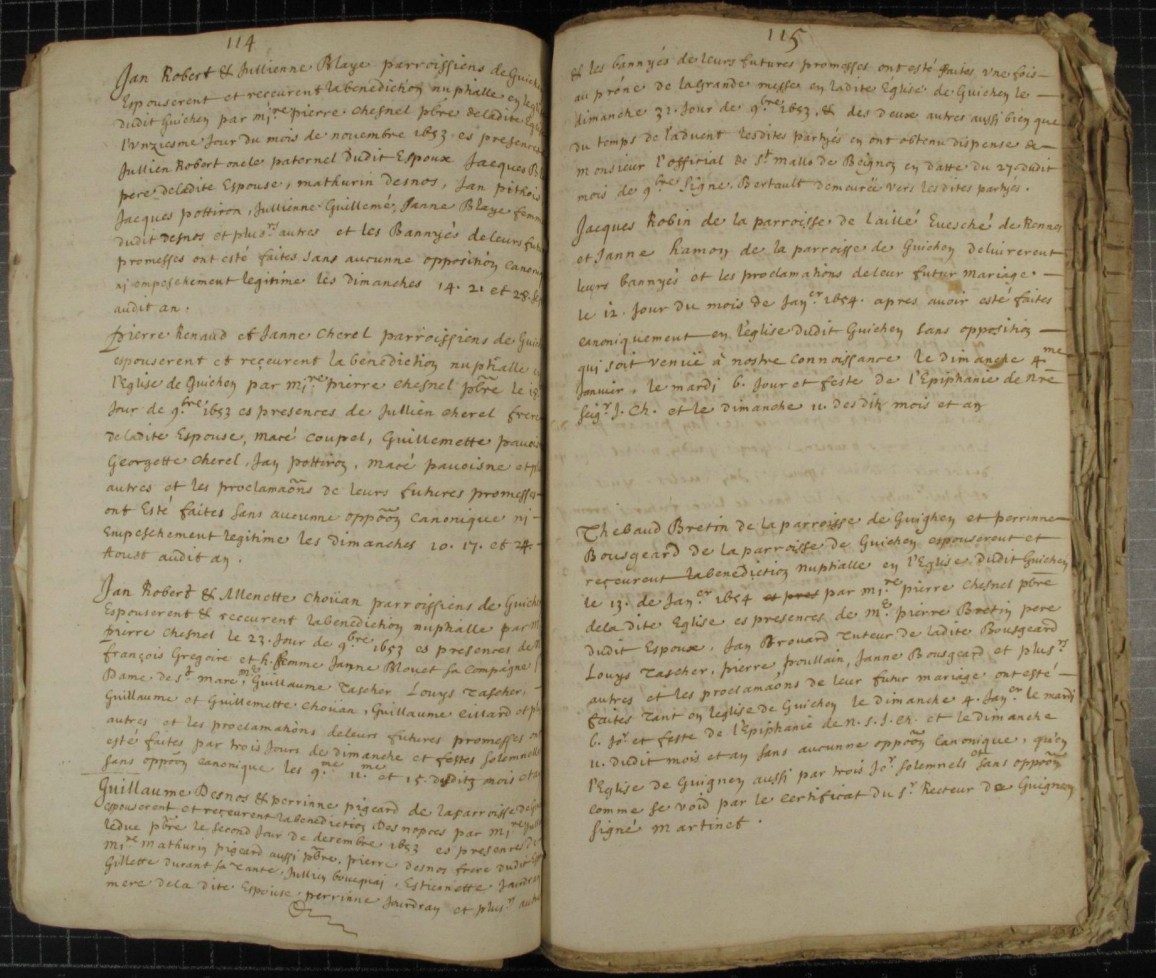 114
Jan Robert & Jullienne Blaye parroissiens de Guichen
Espouserent et receurent labenediction nuphalle en leglise
dudit Guichen par mi.re pierre Chesnel pbre deladite Eglise
l'vnziesme Jour du mois de novembre 1653 es presences
Jullien Robert oncle paternel dudit Espoux Jacques Bl
pere deladite Espouse, mathurin Desnos, Jan pithois
Jacques pottiron, Jullienne Guillemé, Janne Blaye femme
dudit Desnos et plus.rs autres et les Bannyés deleurs fut
promesses ont esté faites sans aucunne opposition Canon
ni empeschement legitime les dimanches 14. 21 et 28.
audit an.
pierre Renaud et Janne Cherel parroissiens de Guich
espouserent et reçeurent la benediction nuphalle e
l'Eglise de Guichen par mi.re pierre Chesnel pbre le 18
Jour de 9bre 1653 es presences de Jullien cherel frere
deladite Espouse, macé Coupel, Guillemette pavois
Georgette Cherel, Jan pottiron, macé pavoisne et pl
autres et les proclamaons de leurs futures promesses
ont Esté faites sans aucunne oppoon canonique ni –
Empeschement legitime les dimanches 10. 17. et 24.
Aoust audit an.
Jan Robert & Allenette Choüan parroissiens de Guich
Espouserent & receurent labenediction nuphalle par m
pierre Chesnel le 23. Jour de 9bre 1653 es presences de
François Gregoire et h. femme Janne Blouet sa Compagne
Dame de st marc, Guillaume Tascher Louys Tascher, –
Guillaume et Guillemette Choüan, Guillaume Cillard et pl
autres et les proclamations deleurs futures promesses on
esté faites par trois Jours de dimanche et festes solemnelles
sans oppoon canonique les 9.me 11.me et 15. desditz mois et an
Guillaume Desnos & perrinne pigeard de laparroisse de
epouserent et receurent labenediction Des nopces par mi.re
ledue pbre le second Jour de decembre 1653 es presences de
mi.re mathurin pigeard aussi pbre, pierre desnos frere dudit
Gillette durant sa tante, Jullien bouquai, Estiennette Jourdran
mere dela dite Espouse, perrinne Jourdran et plus.rs autres
115
& les bannyés de leurs futures promesses ont esté faites vne fois –
au prône de lagrande messe en ladite Eglise de Guichen le –
dimanche 31. Jour de 9bre 1653, & des deux autres aussi bien que
du temps de l'advent lesdites partyes en ont obtenu dispense de
monsieur l'official de st mallo de Beignon en datte du 27 dudit
mois de 9bre signe Bertault demeurée vers lesdites partyes.
Jacques Robin de la parroisse de laillé Euesché de Rennes
et Janne hamon de la parroisse de Guichen deliurerent
leurs bannyés et les proclamations deleur futur mariage –
le 12. Jour du mois de Jan.er 1654. apres auoir esté faites
canoniquement en l'église dudit Guichen sans opposition –
qui soit venüe à nostre connoissance le dimanche 4.me
Janvier, le mardi 6. Jour et feste de l'Epiphanie de Nre
Seig.r J. Ch. et le dimanche 11. desditz mois et an
Thebaud Bretin de la parroisse de Guighen et perrinne
Bousgeard de la parroisse de Guichen espouserent et
reçeurent labenediction nuptialle en l'Eglise dudit Guichen
le 13. de Jan.er 1654 et pres par mi.re pierre Chesnel pbre
dela dite Eglise es presences de me pierre Bretin pere
dudit Espoux, Jan Brouard Tuteur de ladite Bousgeard
Louys Tascher, pierre poullain, Janne Bousgeard et plus.rs
autres et les proclamaons de leur futur mariage ont esté –
faites Tant en leglise de Guichen le dimanche 4. Jan.er le mardi
6. Jo.r et feste de l'Epiphanie de N. s. J. Ch. et le dimanche
11. dudit mois et an sans aucunne oppoon canonique, qu'en
l'Eglise de Guignen aussi par trois Jo.r solemnels et sans oppoon
comme se void par le certificat du s.r Recteur de Guignen
signé martinet.